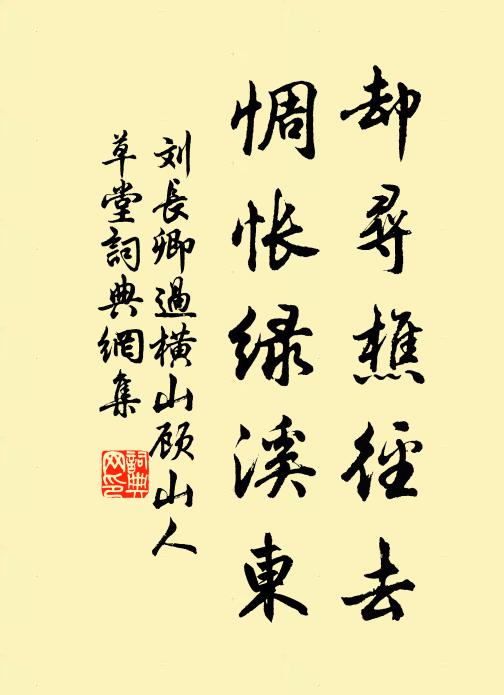 却尋樵徑去
惆怅绿溪東
刘長卿過橫山顾山人
草堂詞典網集
詞典
网印